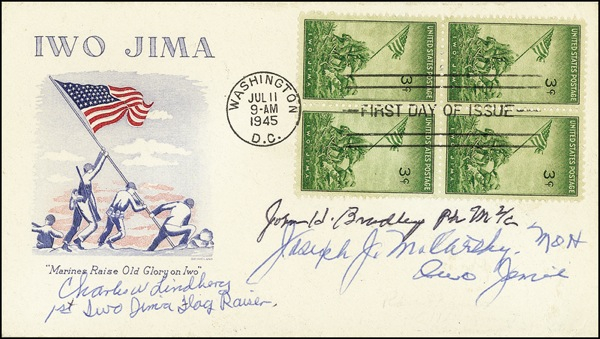 IWO JIMA
"Marines Raise Old Glory on Iwo"
Charles W Lindberg
1st Iwo Jima Flag Raiser.
WASHINGTON
JUL 11
9-AM
1945
D.C.
FIRST DAY OF ISSUE
UNITED STATES POSTAGE
IWO JIMA
3¢
UNITED STATES POSTAGE
IWO JIMA
3¢
UNITED STATES POSTAGE
IWO JIMA
3¢
UNITED STATES POSTAGE
IWO JIMA
3¢
John H. Bradley Ph M 2/c
Joseph J. McCarthy, MOH
Iwo Jima